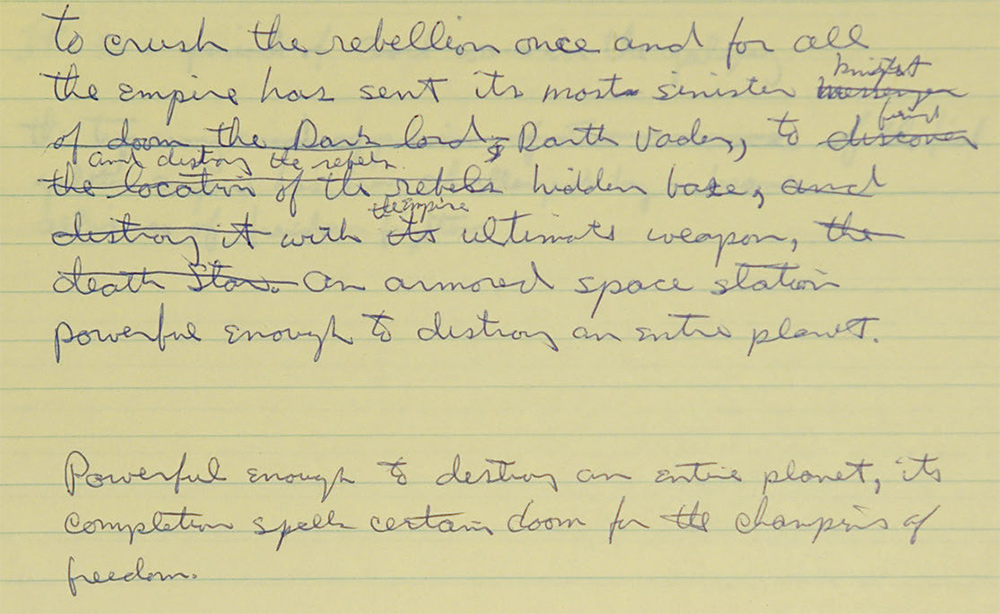 To crush the rebellion once and for all
the empire has sent its most sinister messenger
find
of doom the Dark lord, Darth Vader, to discover
and destroy the rebels
the location of the rebels hidden base, and
the Empire
destroy it with its ultimate weapon, the
death Star. an armored space station
powerful enough to destroy an entire planet.
Powerful enough to destroy an entire planet, its
completion spells certain doom for the champions of
freedom.